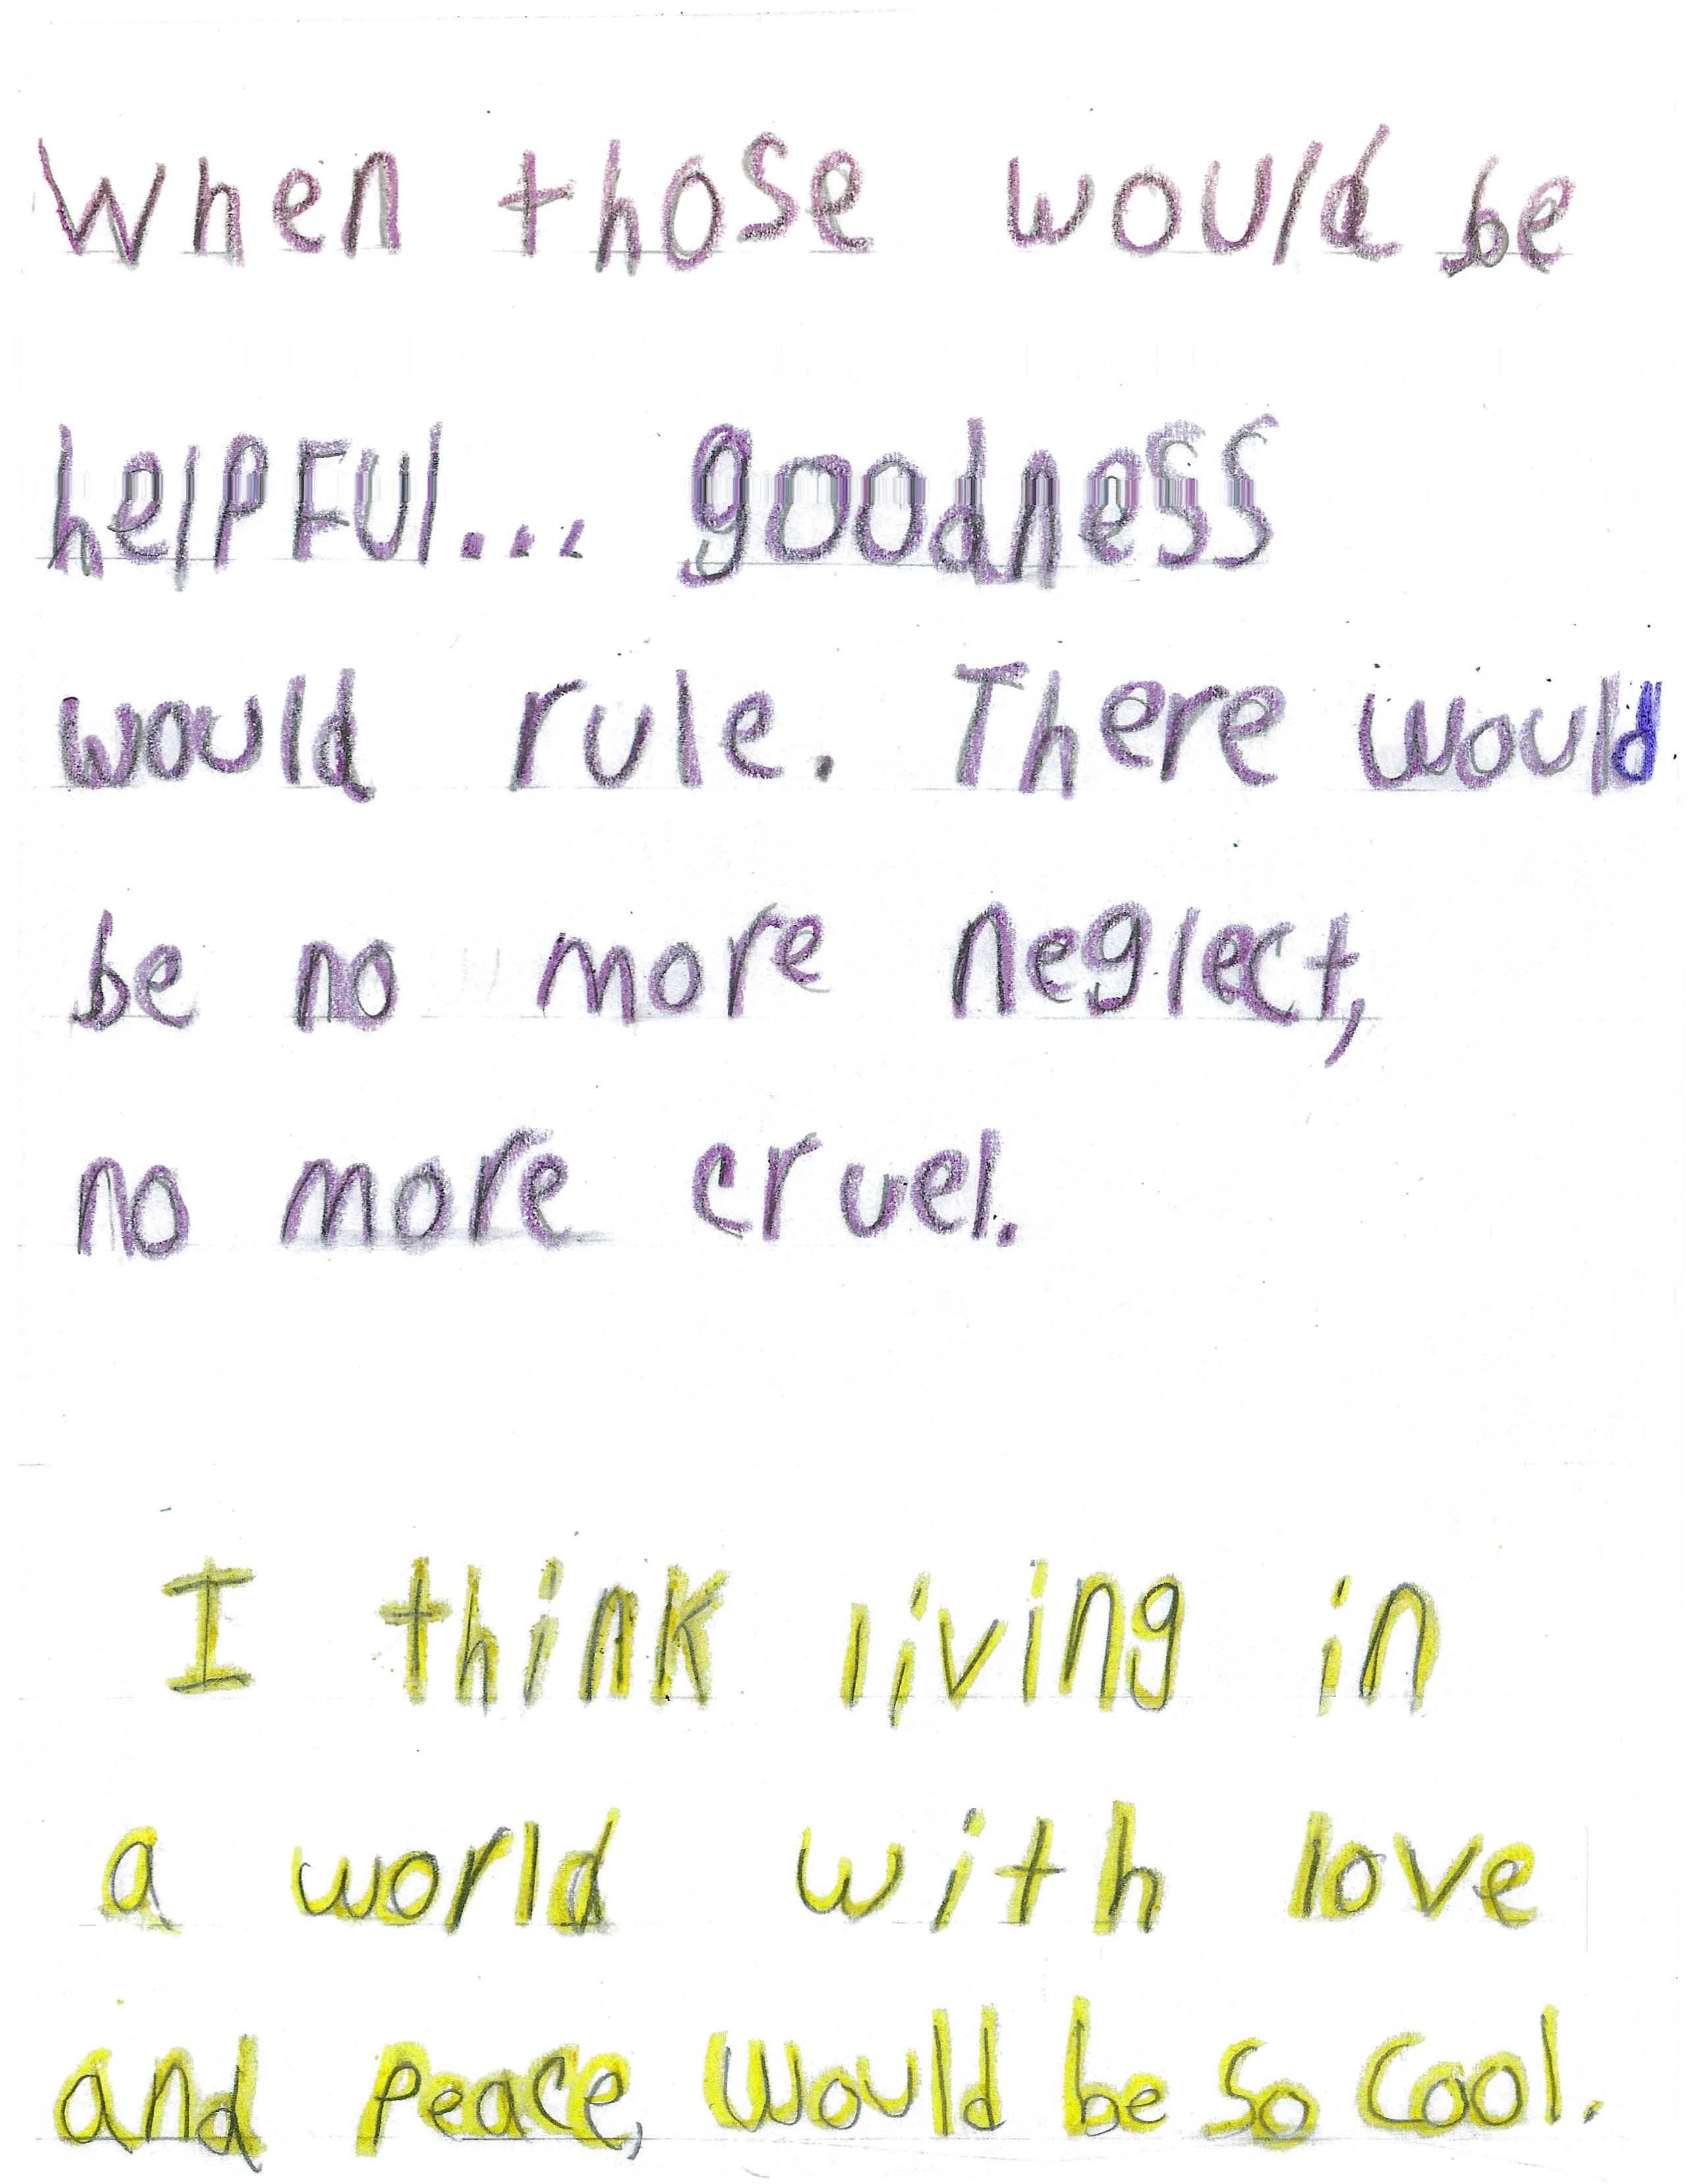 When those would be
helpFul... goodness
would rule. There would
be no more neglect,
no more cruel.
I think living in
a world with love
and peace, would be so cool.